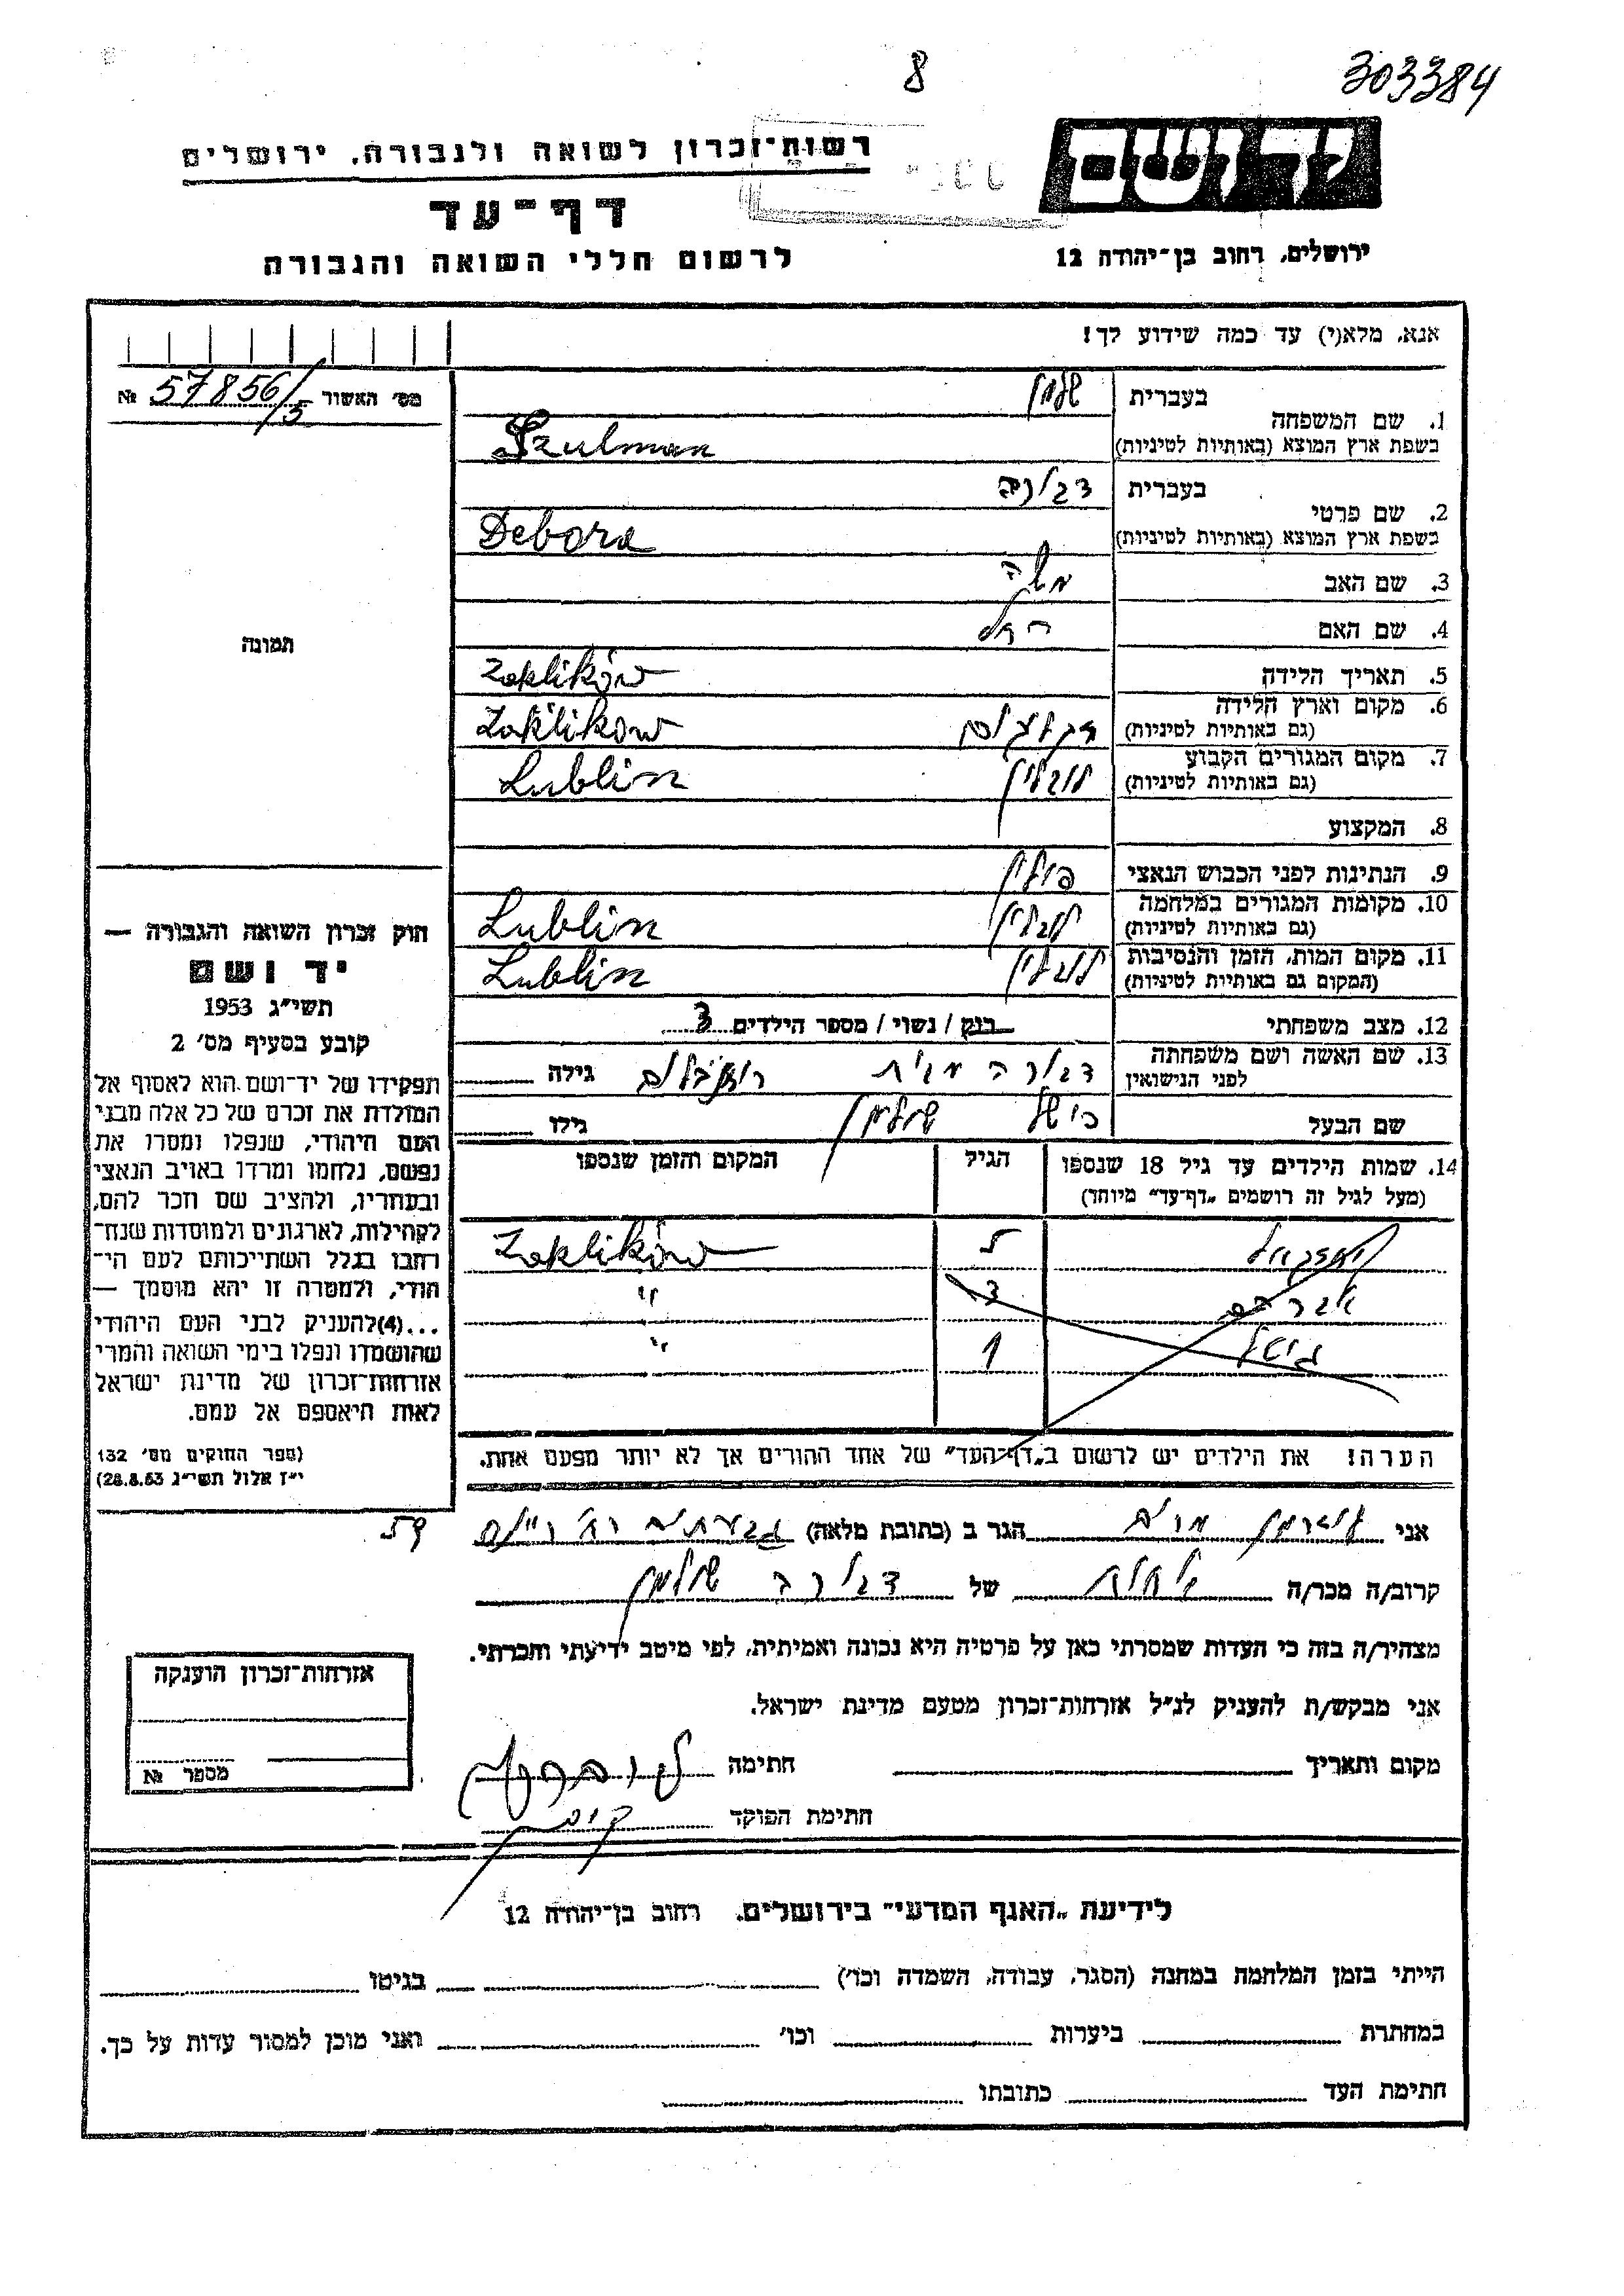 303384
8
ידושם
ירושלים, רחוב בן־יהודה 12
רשות־זכרון לשואה ולגבורה, ירושלים
דף־עד
לרשום חללי השואה והגבורה
אנא, מלא(י) עד כמה שידוע לך!
מס׳ האשור 57856/5 №
1. שם המשפחה
בעברית שולמן
בשפת ארץ המוצא (באותיות לטיניות) Szulman
2. שם פרטי
בעברית דבורה
בשפת ארץ המוצא (באותיות לטיניות) Debora
3. שם האב משה
4. שם האם רחל
5. תאריך הלידה Zaklików
6. מקום וארץ הלידה
(גם באותיות לטיניות) Zaklikow
7. מקום המגורים הקבוע
(גם באותיות לטיניות) לובלין Lublin
8. המקצוע
9. הנתינות לפני הכבוש הנאצי פולין
10. מקומות המגורים במלחמה
(גם באותיות לטיניות) לובלין Lublin
11. מקום המות, הזמן והנסיבות
(המקום גם באותיות לטיניות) לובלין Lublin
12. מצב משפחתי רוק / נשוי / מספר הילדים 3
13. שם האשה ושם משפחתה
לפני הנישואין דבורה מבית גילה
שם הבעל שולמן גילו
14. שמות הילדים עד גיל 18 שנספו
(מעל לגיל זה רושמים „דף־עד״ מיוחד)
הגיל
המקום והזמן שנספו
5 Zaklików
אברהם 3 "
גיטל 1 "
הערה! את הילדים יש לרשום ב„דף־העד״ של אחד ההורים אך לא יותר מפעם אחת.
תמונה
חוק זכרון השואה והגבורה —
יד ושם
תשי״ג 1953
קובע בסעיף מס׳ 2
תפקידו של יד־ושם הוא לאסוף אל
המולדת את זכרם של כל אלה מבני
העם היהודי, שנפלו ומסרו את
נפשם, נלחמו ומרדו באויב הנאצי
ובעוזריו, ולהציב שם וזכר להם,
לקהילות, לארגונים ולמוסדות שנח־
רחבו בגלל השתייכותם לעם הי־
הודי, ולמטרה זו יהא מוסמך —
...(4)להעניק לבני העם היהודי
שהושמדו ונפלו בימי השואה והמרי
אזרחות־זכרון של מדינת ישראל
לאות היאספם אל עמם.
(ספר החוקים מס׳ 132
י״ז אלול תשי״ג 28.8.53)
אני מרים הגר ב (כתובת מלאה) גבעתים רח׳
קרוב/ה מכר/ה אחות של דבורה שולמן
מצהיר/ה בזה כי העדות שמסרתי כאן על פרטיה היא נכונה ואמיתית, לפי מיטב ידיעתי והכרתי.
אני מבקש/ת להעניק לנ״ל אזרחות־זכרון מטעם מדינת ישראל.
מקום ותאריך חתימה
חתימת הפוקד
אזרחות־זכרון הוענקה
מספר №
לידיעת „האגף המדעי״ בירושלים, רחוב בן־יהודה 12
הייתי בזמן המלחמה במחנה (הסגר, עבודה, השמדה וכו׳) בגיטו
במחתרת ביערות וכו׳ ואני מוכן למסור עדות על כך.
חתימת העד כתובתו